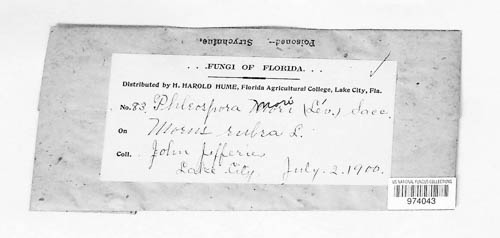 Poisoned - Strychnine.
...FUNGI OF FLORIDA...
Distributed by H. HAROLD HUME, Florida Agricultural College, Lake City, Fla.
No. 83 Phleospora Mori (Lév.) Sacc.
On Morus rubra L.
Coll. John Jefferies
Lake City July 2. 1900.
US NATIONAL FUNGUS COLLECTIONS
974043